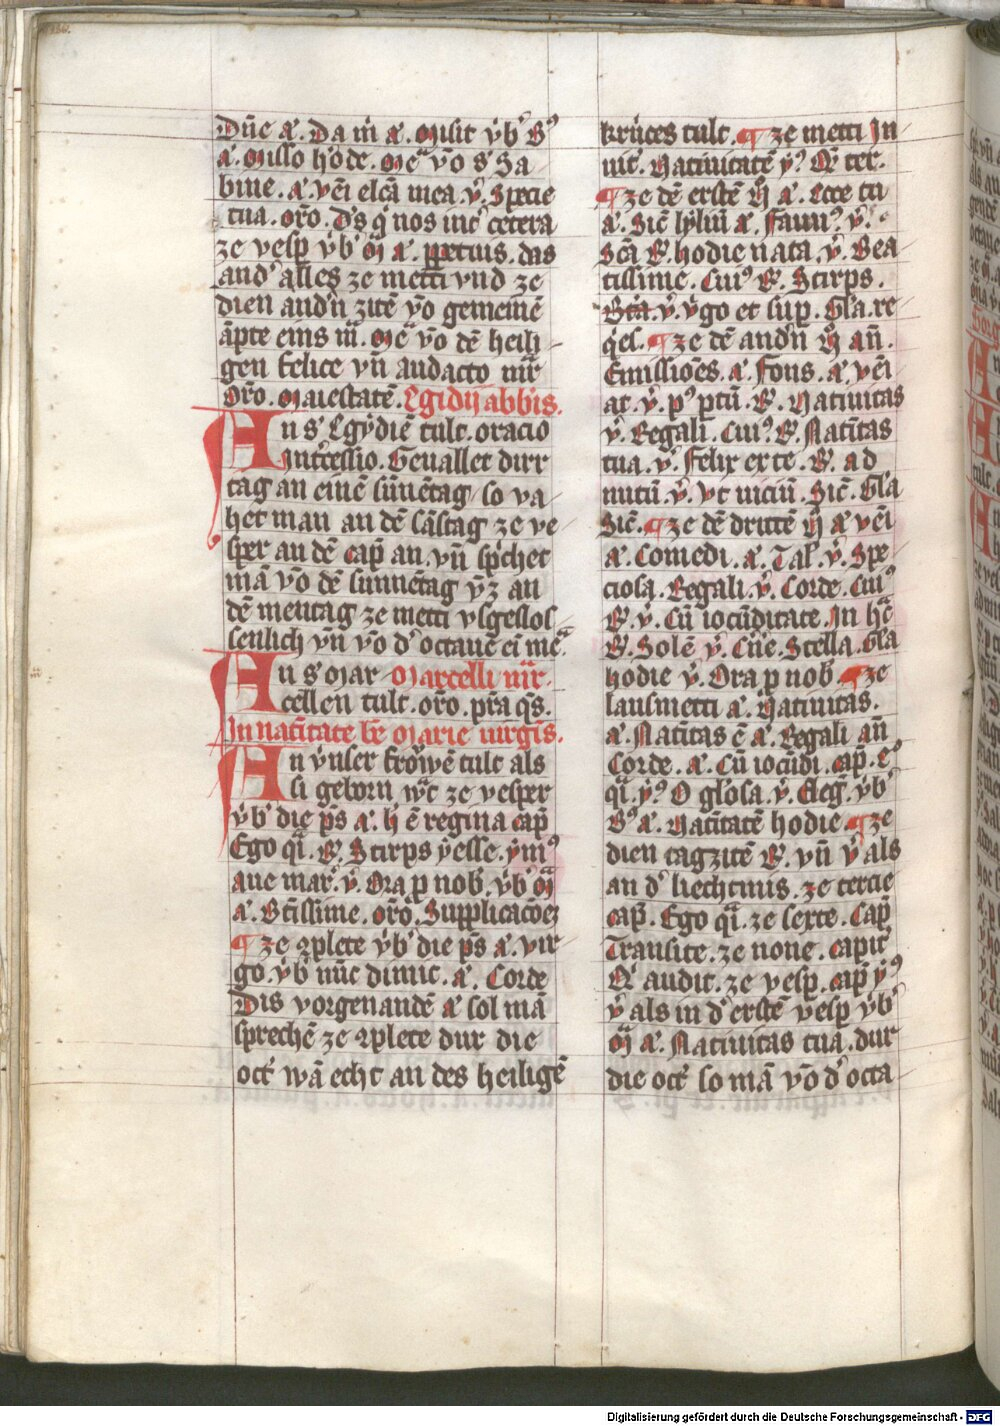 Dn̄e a᷑. Da m̄ a᷑. Misit ẏb᷑ B᷒
a᷑. Misso h᷑ode. Me᷑ vo᷑ s᷑ Sa
bine. a᷑. veī elc̄a mea. ẏ. Specie
tua. or̄o. Ds̄ q᷑ nos inc̄ cetera
ze vesp̄ ẏb᷑ M̄ a᷑. p̄rectus. das
and᷑ alles ze metti vnd ze
dien andn̄ zitē vo᷑ gemeinē
āp̄te eins m̄. Me᷑ vo᷑ dē heili
gen felice vn̄ audacto mr̄
or̄o. Maiestatē. Egidij abbis.
An s᷑ Egẏdiē tult. oracio
Intercessio. Geuallet dirr
tag an einē sūnētag so va
het man an dē sāstag ze ve
sper an dē cap̄ an. vn̄ sp̄chet
mā vo᷑ dē sunnētag vn̄z an
dē mentag ze metti vsgeslos
senlich vn̄ vo᷑ d᷑ octaue ei me᷑
An s᷑ Mar Marcelli mr̄.
cellen tult. or̄o. pr̄a qs̄.
In natītate bē Marie uirgīs.
An ẏnser frowē tult als
si geborn wc̄ ze vesper
ẏb᷑ die ps̄ a᷑. h᷑ ē regina cap̄
Ego qī. R̄. Stirps ẏesse. ẏm᷒
aue mar᷑. ẏ. Ora p nob᷑. ẏb᷑ M̄
a᷑. Btīssime. or̄o. Supplicacōeꝫ
¶ ze ꝯplete ẏb᷑ die ps̄ a᷑. vir
go. ẏb᷑ nūc dimit. a᷑. Corde
Dis vorgenandē a᷑ sol mā
sprechē ze ꝯplete dur die
oct᷑ wā echt an des heiligē
krúces tult. ¶ ze metti In
uit᷑. Natiuitatē ẏ᷒. Q̄ ter.
¶ ze dē erstē N̄ a᷑. Ecce tu
a᷑. Sic᷑ lẏliū a᷑. Fauu᷒. ẏ.
Sc̄a R̄. hodie nata. ẏ. Bea
tissime. Cui᷒ R̄. Stirps.
Bt̄a. ẏ. v᷑go et sup̄. Gl̄a. re
q̄es. ¶ ze dē andn̄ N̄ an̄.
Emissiōes. a᷑. Fons. a᷑. veī
at. ẏ. p᷒ ptū. R̄. Natiuitas
ẏ. Regali. Cui᷒. R̄. Natītas
tua. ẏ. Felix ex te. R̄. ad
nutū. ẏ. vt uiciū. Sic᷑. Gl̄a
Sic᷑. ¶ ze dē drittē N̄ a᷑ veī
a᷑. Comedi. a᷑. Tal᷑. ẏ. Spe
ciosa. Regali. ẏ. Corde. Cui᷒
R̄. ẏ. Cū iocūditate. In h᷑c
R̄. Solē ẏ. Cn̄e. Stella. Gl̄a
hodie ẏ. Ora p nob. ¶ ze
lausmetti a᷑. Natiuitas.
a᷑. Natītas ē a᷑. Regali an̄
Corde. a᷑. Cū iocūdi. cap̄. E᷒
qī. ẏ᷒. O glōsa. ẏ. Eleg᷑. ẏb᷑
B᷒ a᷑. Natītatē hodie. ¶ ze
dien tagzitē R̄. vn̄ ẏ als
an d᷑ liechtmis. ze tercie
cap̄. Ego qī. ze sexte. Cap̄
Transite. ze none. capit᷑
Q̄ audit. ze vesp̄. cap̄ ẏ᷒
ẏ als in d᷑ erstē vesp̄ ẏb᷑
M̄ a᷑. Natiuitas tua. dur
die oct᷑ so mā vo᷑ d᷑ octa
Digitalisierung gefördert durch die Deutsche Forschungsgemeinschaft - DFG